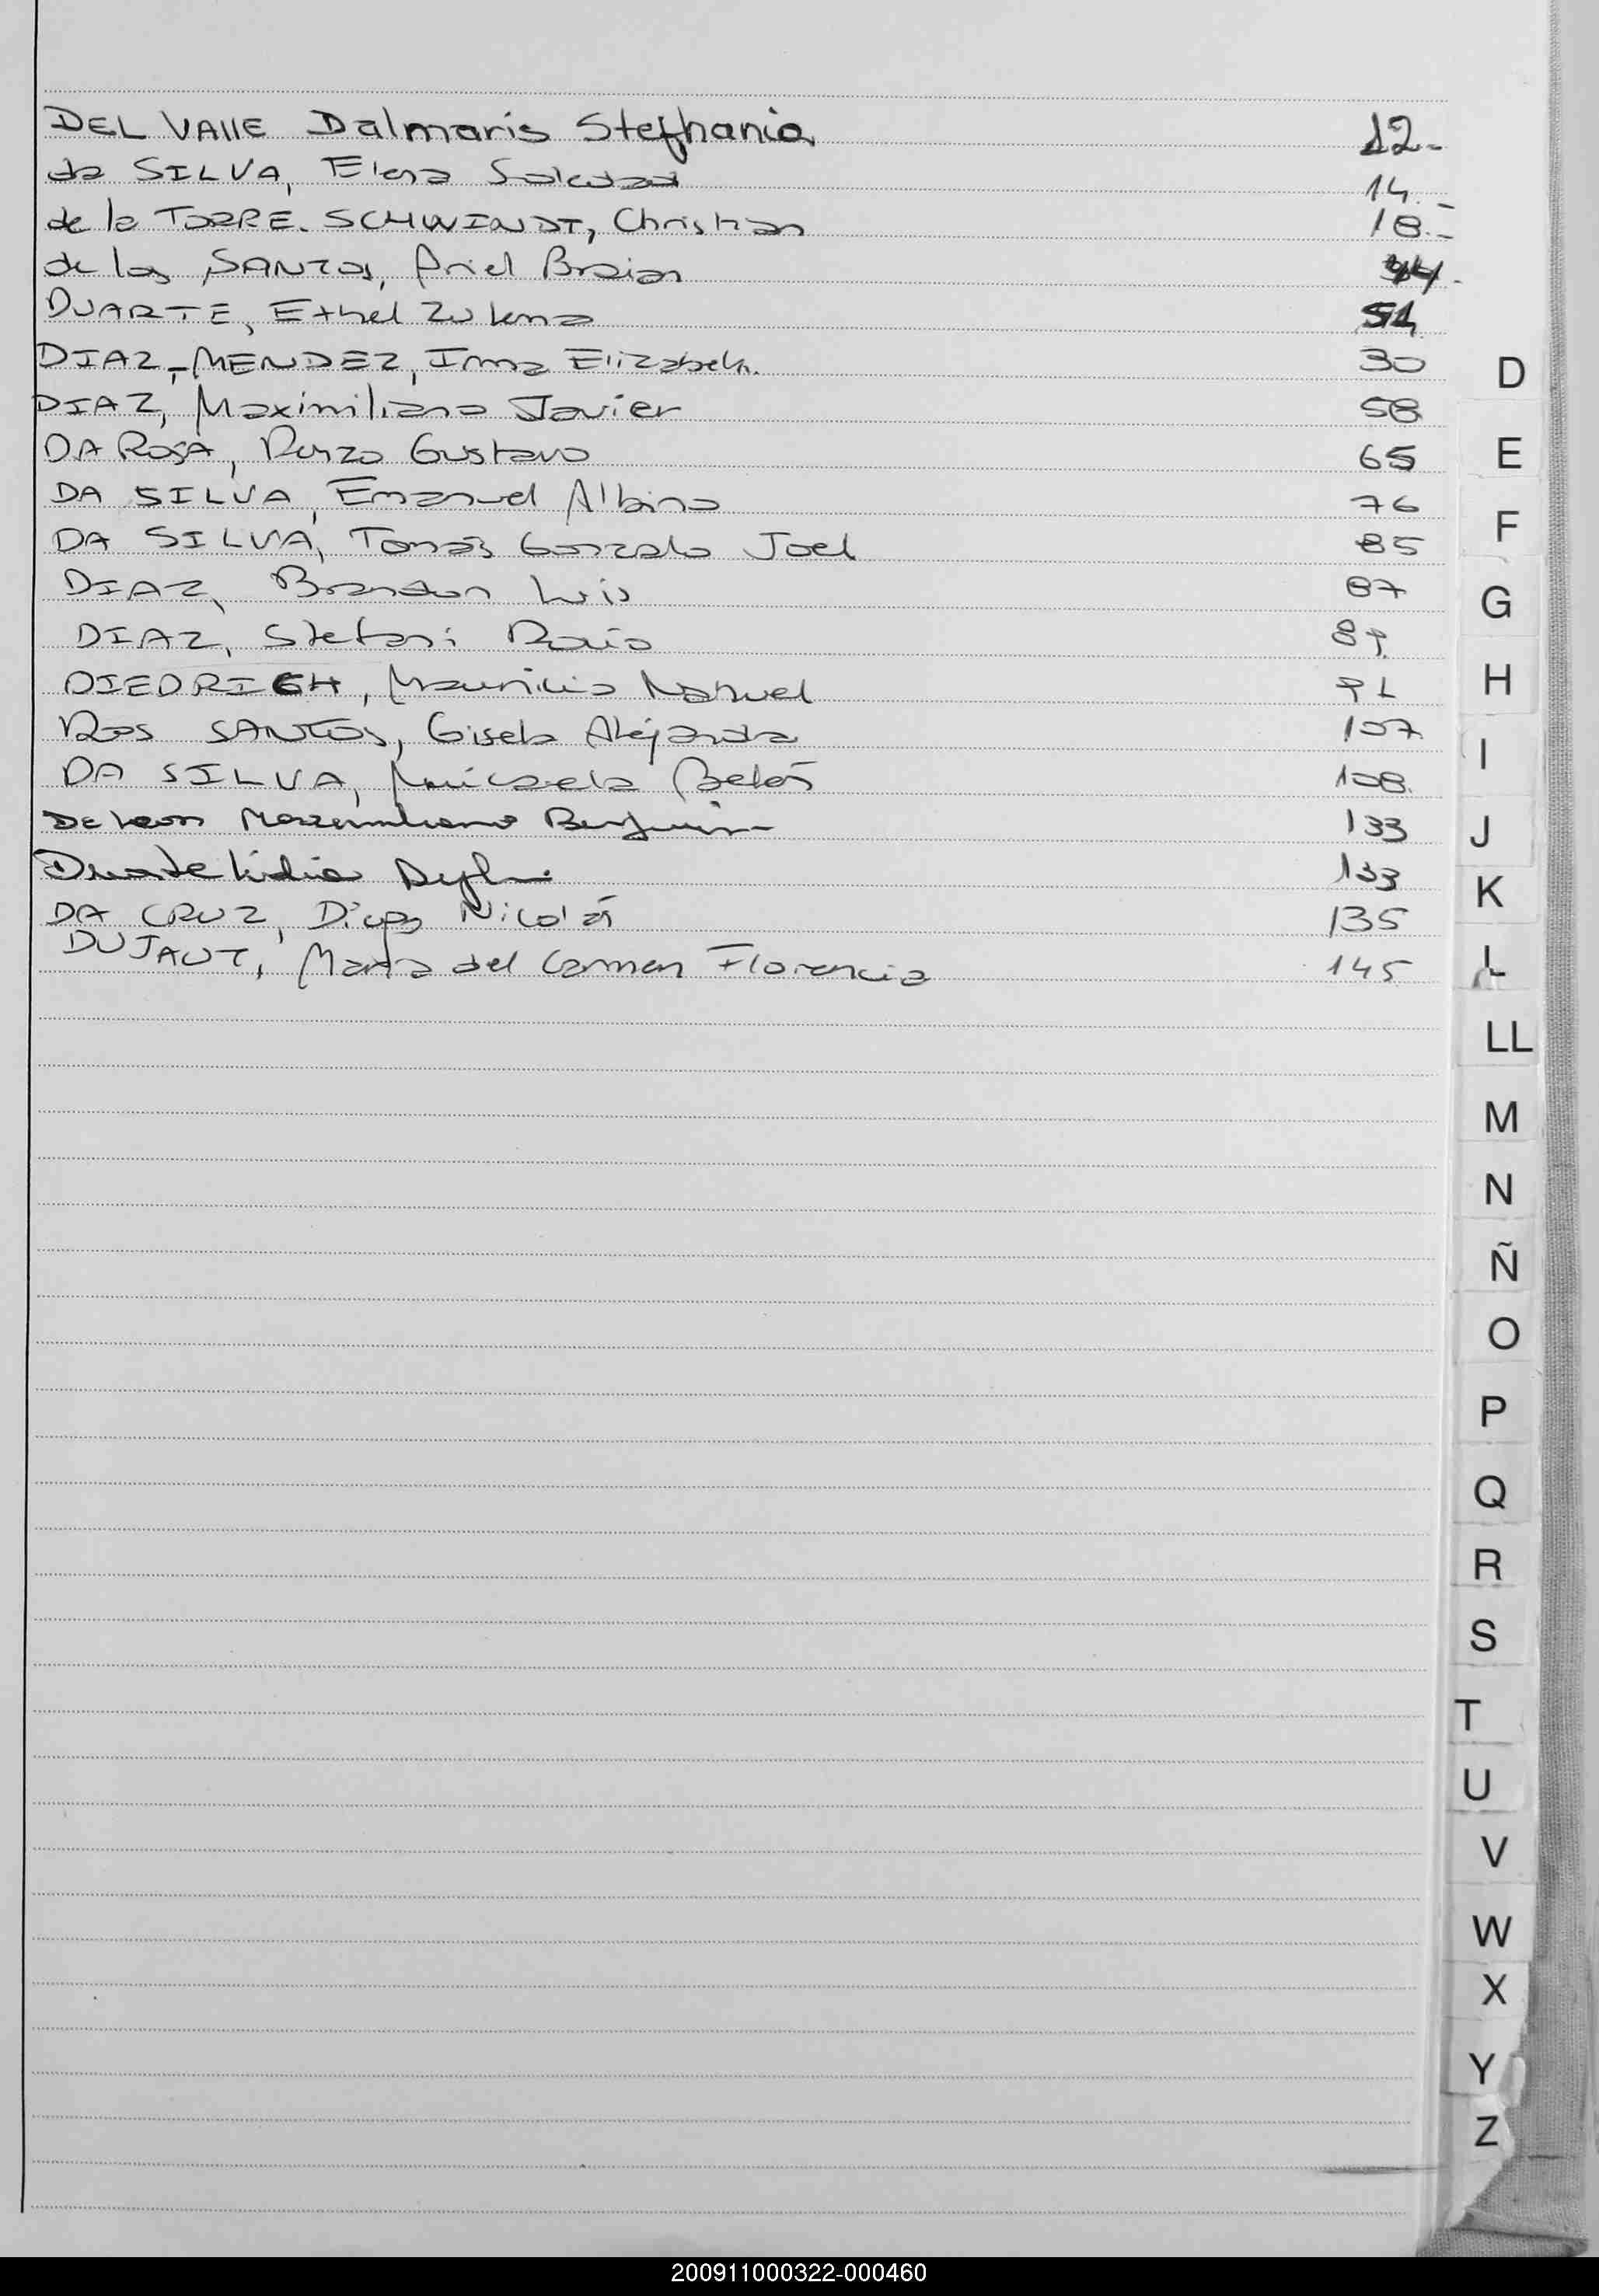 DEL VAllE Dalmaris Stefhania 12.-
da SILVA, Elena Soledad 14.-
de la TORRE. SCHWINDT, Christian 18.-
de los SANTOS, Ariel Braian 44.
DUARTE, Ethel Zulema 51
DIAZ,-MENDEZ, Irma Elizabeth. 30
DIAZ, Maximiliano Javier 58
DA ROSA, Renzo Gustavo 65
DA SILVA, Emanuel Albino 76
DA SILVA, Tomás Gonzalo Joel 85
DIAZ, Brandon Luis 87
DIAZ, Stefani Rocío 89
DIEDRICH, Mauricio Nahuel 91
Dos SANTOS, Gisela Alejandra 107
DA SILVA, Micaela Belén 108.
De Leon Maximiliano Benjamin 133
Duarte Lidia 133
DA CRUZ, Diego Nicolás 135
DUJAUT, María del Carmen Florencia 145
D
E
F
G
H
I
J
K
L
LL
M
N
Ñ
O
P
Q
R
S
T
U
V
W
X
Y
Z
200911000322-000460